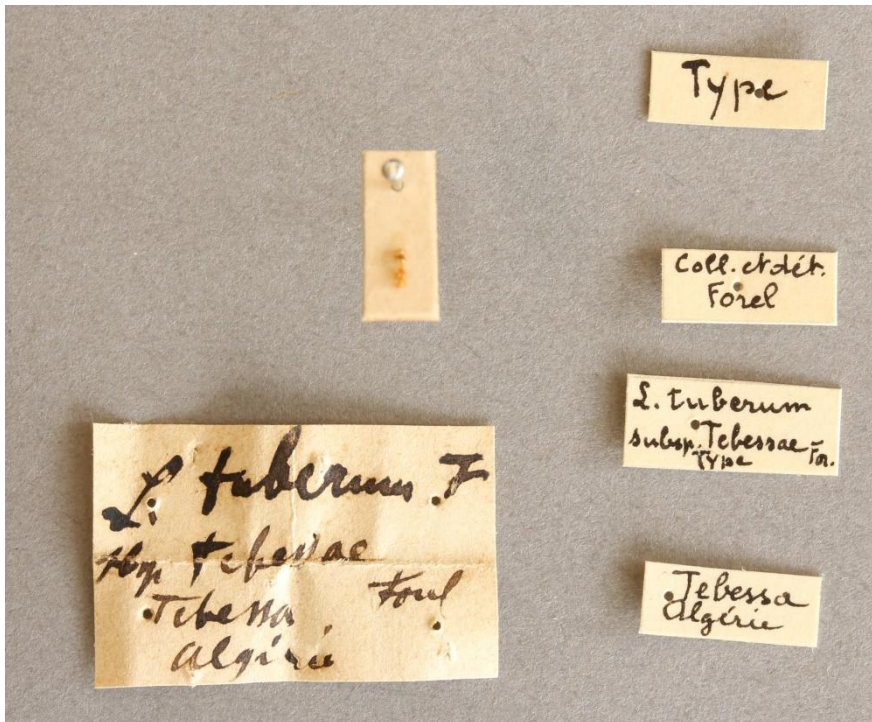 Type
Coll. et dét.
Forel
L. tuberum
subsp. Tebessae For.
Type
Tebessa
Algérie
L. tuberum F
Tebessae
Forel
Tebessa
Algérie